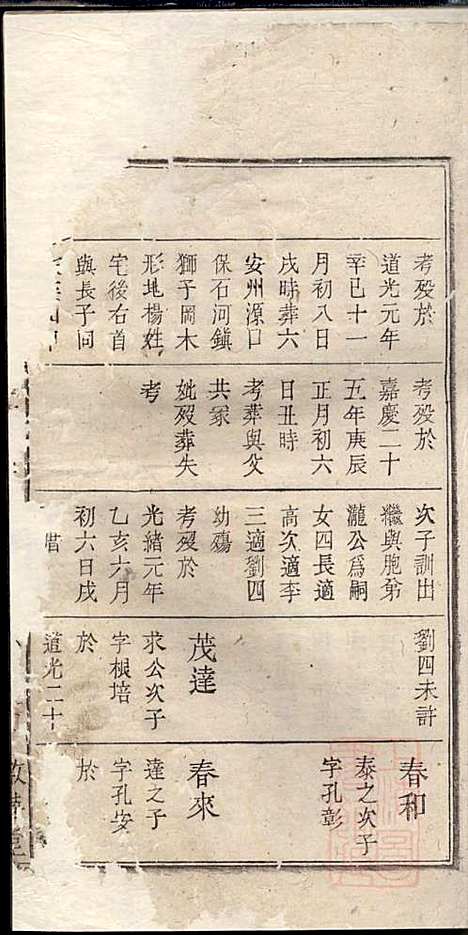 考歿於
道光元年
辛巳十一
月初八日
戌時葬六
安州源口
保石河鎮
獅子岡木
形地楊姓
宅後右首
與長子同
考歿於
嘉慶二十
五年庚辰
正月初六
日丑時
考葬與父
共冢
妣歿葬失
考
次子訓出
繼與胞弟
瀧公爲嗣
女四長適
高次適李
三適劉四
幼殤
考歿於
光緒元年
乙亥六月
初六日戌
劉四未許
茂達
求公次子
字根培
於
道光二十
春和
泰之次子
字孔彰
春來
達之子
字孔安
於